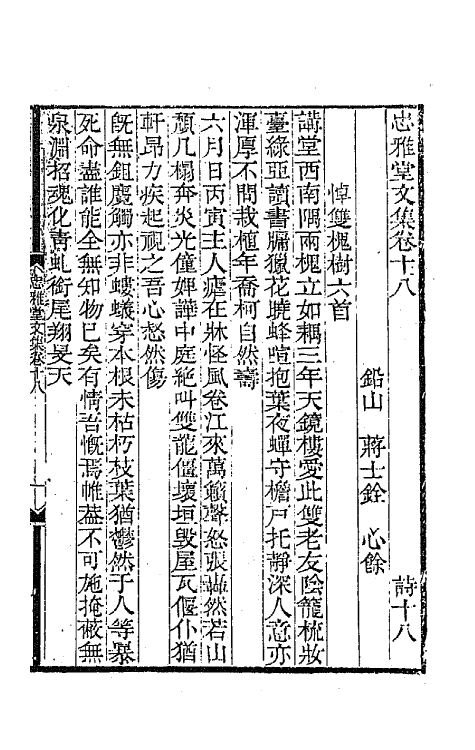 忠雅堂文集卷十八　詩十八
鉛山　蔣士銓　心餘
悼雙槐樹六首
講堂西南隅兩槐立如耦三年天鏡樓愛此雙老友陰籠梳妝
臺綠亞讀書牖獵花曉蜂喧抱葉夜蟬守檐戶托靜深人意亦
渾厚不問栽植年喬柯自然壽
六月日丙寅主人瘧在牀怪風卷江來萬籟聲怒張轟然若山
頹几榻奔炎光僮婢譁中庭絕叫雙龍僵壞垣毀屋瓦偃仆猶
軒昂力疾起視之吾心愁然傷
旣無鉏麑觸亦非螻蟻穿本根未枯朽枝葉猶鬱然于人等暴
死命盡誰能全無知物已矣有情吾慨焉帷蓋不可施掩蔽無
泉淵招魂化靑虬銜尾翔旻天
忠雅堂文集卷十八
一